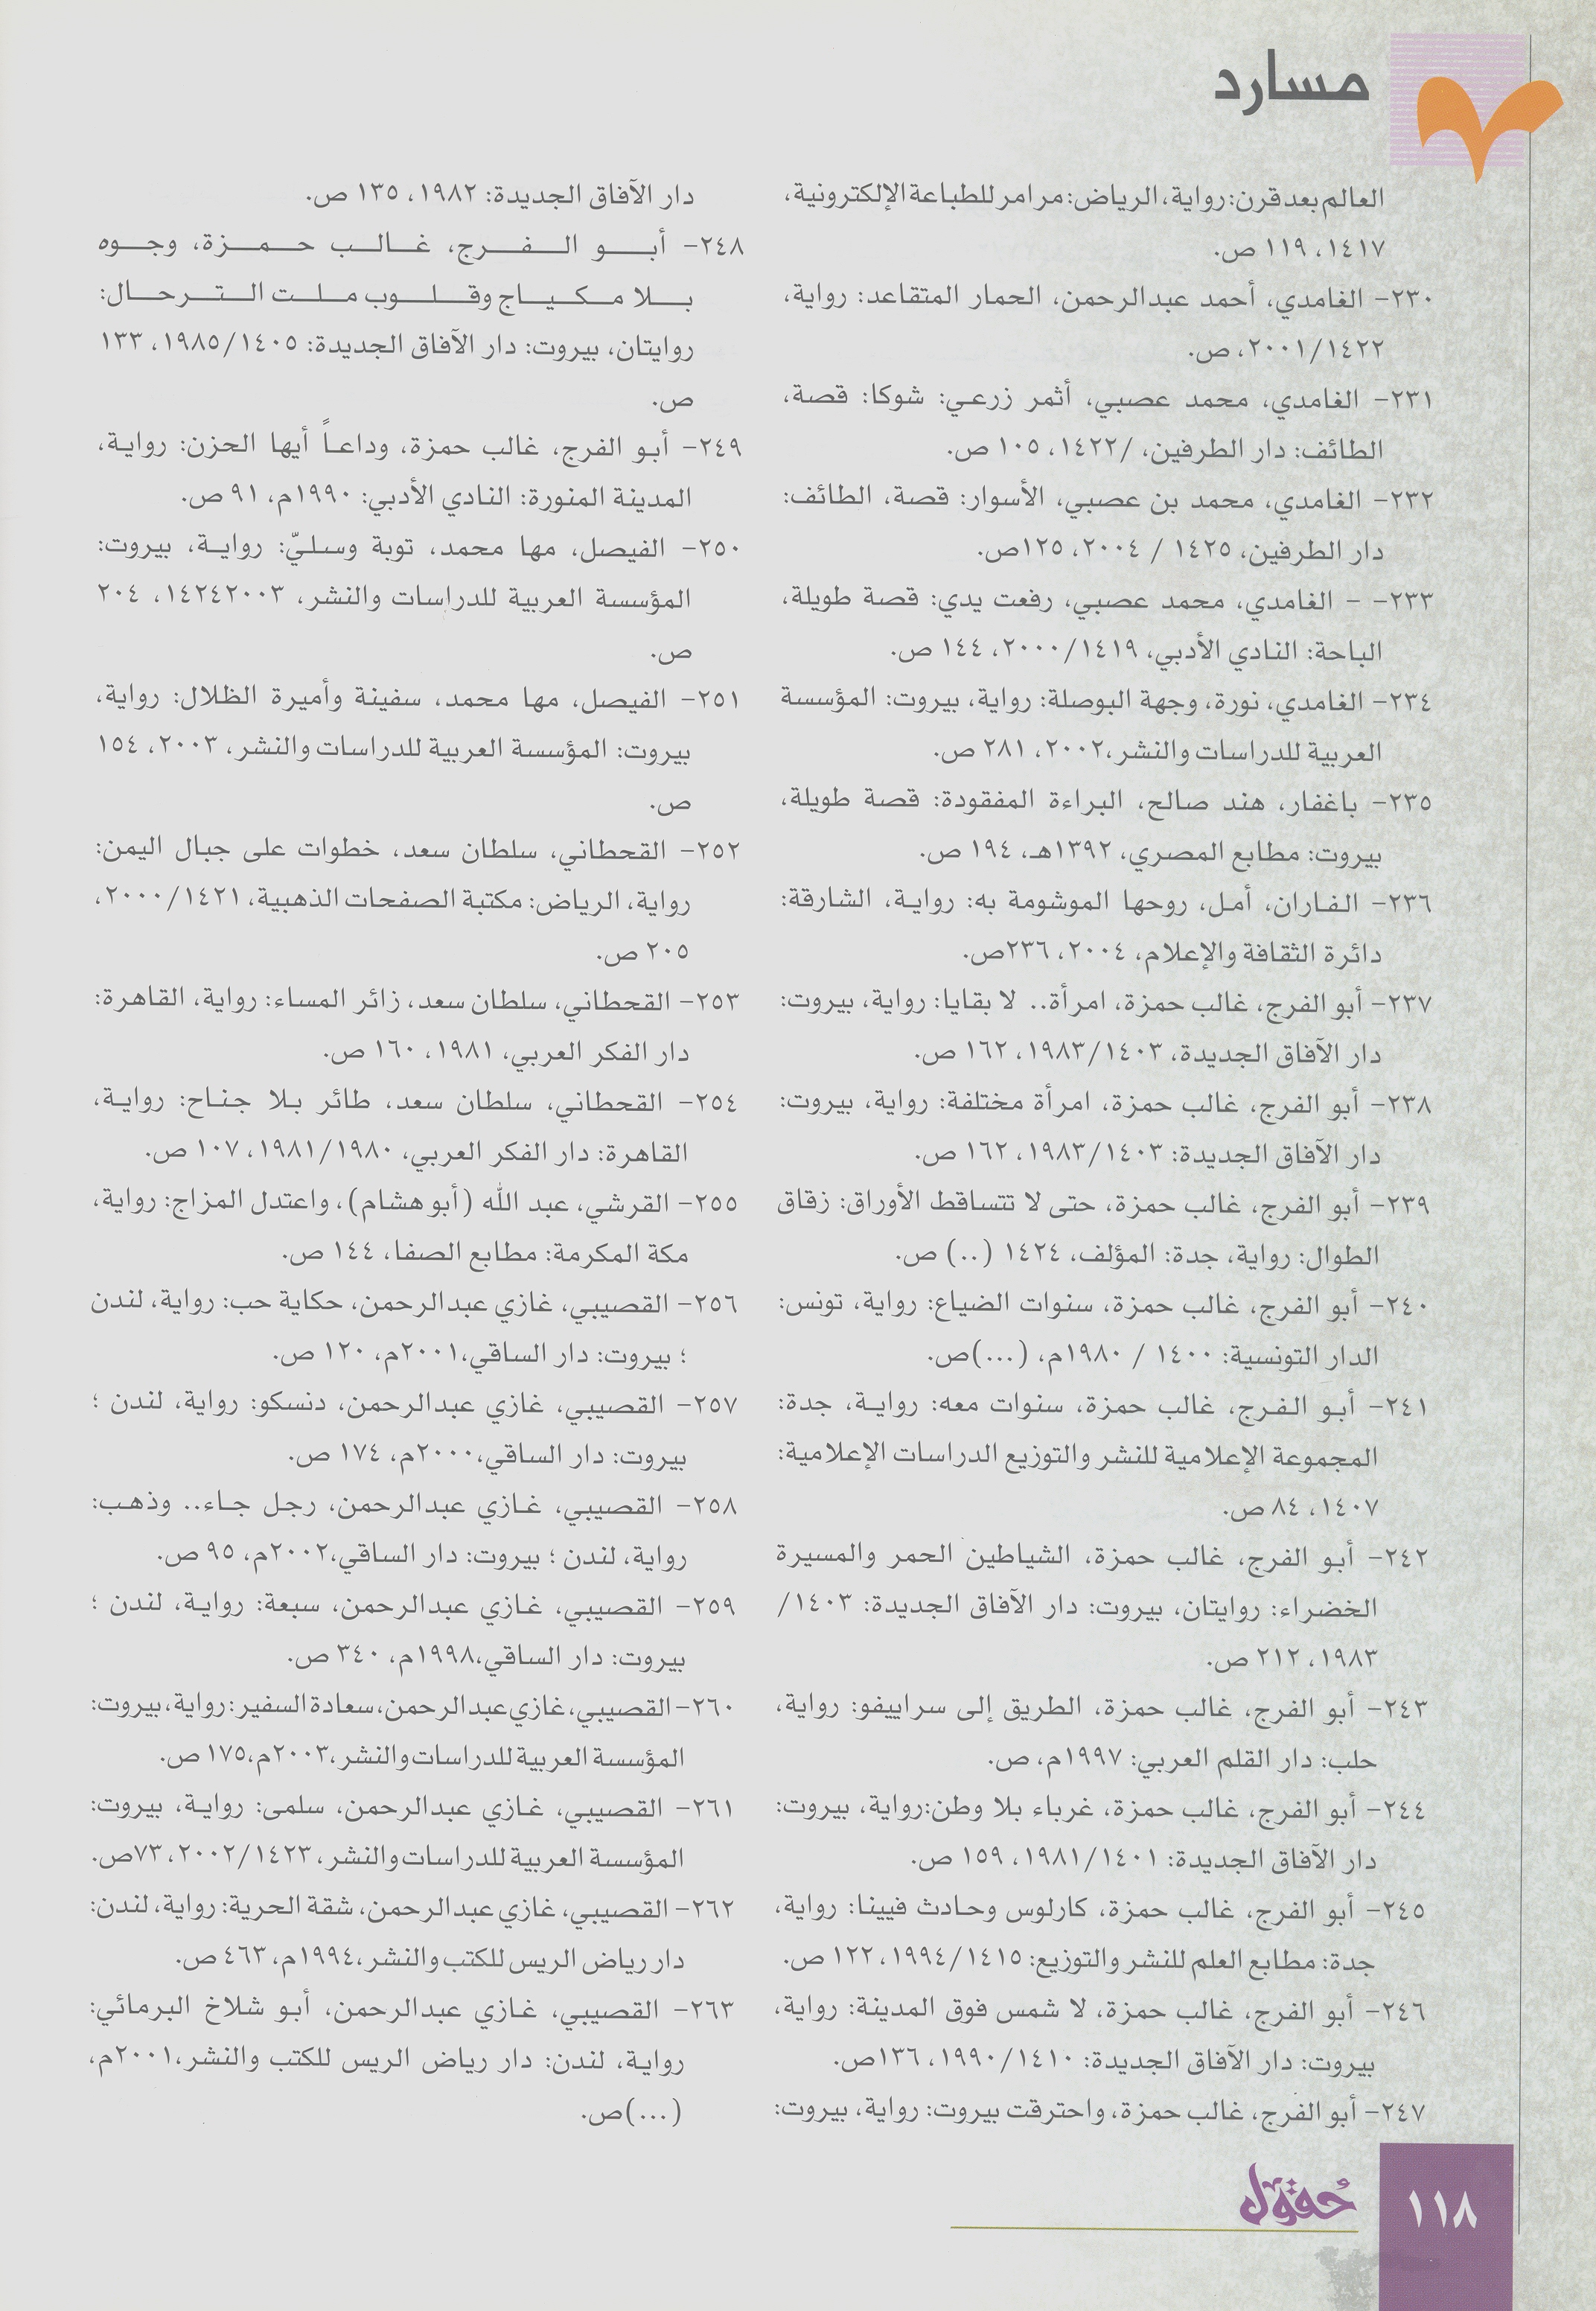 مسارد
العالم بعد قرن: رواية، الرياض: مرامر للطباعة الإلكترونية،
١٤١٧، ١١٩ ص.
٢٣٠- الغامدي، أحمد عبدالرحمن، الحمار المتقاعد: رواية،
٢٠٠١/١٤٢٢، ص.
٢٣١- الغامدي، محمد عصبي، أثمر زرعي: شوكا: قصة،
الطائف: دار الطرفين، /١٤٢٢، ١٠٥ ص.
٢٣٢- الغامدي، محمد بن عصبي، الأسوار: قصة، الطائف:
دار الطرفين، ١٤٢٥ / ٢٠٠٤، ١٢٥ص.
٢٣٣- - الغامدي، محمد عصبي، رفعت يدي: قصة طويلة،
الباحة: النادي الأدبي، ٢٠٠٠/١٤١٩، ١٤٤ ص.
٢٣٤- الغامدي، نورة، وجهة البوصلة: رواية، بيروت: المؤسسة
العربية للدراسات والنشر،٢٠٠٢، ٢٨١ ص.
٢٣٥- باغفار، هند صالح، البراءة المفقودة: قصة طويلة،
بيروت: مطابع المصري، ١٣٩٢هـ، ١٩٤ ص.
٢٣٦- الفاران، أمل، روحها الموشومة به: رواية، الشارقة:
دائرة الثقافة والإعلام، ٢٠٠٤، ٢٣٦ص.
٢٣٧- أبو الفرج، غالب حمزة، امرأة.. لا بقايا: رواية، بيروت:
دار الآفاق الجديدة، ١٩٨٣/١٤٠٣، ١٦٢ ص.
٢٣٨- أبو الفرج، غالب حمزة، امرأة مختلفة: رواية، بيروت:
دار الآفاق الجديدة: ١٩٨٣/١٤٠٣، ١٦٢ ص.
٢٣٩- أبو الفرج، غالب حمزة، حتى لا تتساقط الأوراق: زقاق
الطوال: رواية، جدة: المؤلف، ١٤٢٤ (..) ص.
٢٤٠- أبو الفرج، غالب حمزة، سنوات الضياع: رواية، تونس:
الدار التونسية: ١٤٠٠ / ١٩٨٠م، (...)ص.
٢٤١- أبو الفرج، غالب حمزة، سنوات معه: رواية، جدة:
المجموعة الإعلامية للنشر والتوزيع الدراسات الإعلامية:
١٤٠٧، ٨٤ ص.
٢٤٢- أبو الفرج، غالب حمزة، الشياطين الحمر والمسيرة
الخضراء: روايتان، بيروت: دار الآفاق الجديدة: ١٤٠٣/
١٩٨٣، ٢١٢ ص.
٢٤٣- أبو الفرج، غالب حمزة، الطريق إلى سراييفو: رواية،
حلب: دار القلم العربي: ١٩٩٧م، ص.
٢٤٤- أبو الفرج، غالب حمزة، غرباء بلا وطن:رواية، بيروت:
دار الآفاق الجديدة: ١٩٨١/١٤٠١، ١٥٩ ص.
٢٤٥- أبو الفرج، غالب حمزة، كارلوس وحادث فيينا: رواية،
جدة: مطابع العلم للنشر والتوزيع: ١٩٩٤/١٤١٥، ١٢٢ ص.
٢٤٦- أبو الفرج، غالب حمزة، لا شمس فوق المدينة: رواية،
بيروت: دار الآفاق الجديدة: ١٩٩٠/١٤١٠، ١٣٦ص.
٢٤٧- أبو الفرج، غالب حمزة، واحترقت بيروت: رواية، بيروت:
دار الآفاق الجديدة: ١٩٨٢، ١٣٥ ص.
٢٤٨- أبو الفرج، غالب حمزة، وجوه
بلا مكياج وقلوب ملت الترحال:
روايتان، بيروت: دار الآفاق الجديدة: ١٩٨٥/١٤٠٥، ١٣٣
ص.
٢٤٩- أبو الفرج، غالب حمزة، وداعاً أيها الحزن: رواية،
المدينة المنورة: النادي الأدبي: ١٩٩٠م، ٩١ ص.
٢٥٠- الفيصل، مها محمد، توبة وسليّ: رواية، بيروت:
المؤسسة العربية للدراسات والنشر، ١٤٢٤٢٠٠٣، ٢٠٤
ص.
٢٥١- الفيصل، مها محمد، سفينة وأميرة الظلال: رواية،
بيروت: المؤسسة العربية للدراسات والنشر، ٢٠٠٣، ١٥٤
ص.
٢٥٢- القحطاني، سلطان سعد، خطوات على جبال اليمن:
رواية، الرياض: مكتبة الصفحات الذهبية، ٢٠٠٠/١٤٢١،
٢٠٥ ص.
٢٥٣- القحطاني، سلطان سعد، زائر المساء: رواية، القاهرة:
دار الفكر العربي، ١٩٨١، ١٦٠ ص.
٢٥٤- القحطاني، سلطان سعد، طائر بلا جناح: رواية،
القاهرة: دار الفكر العربي، ١٩٨١/١٩٨٠، ١٠٧ ص.
٢٥٥- القرشي، عبد الله (أبو هشام)، واعتدل المزاج: رواية،
مكة المكرمة: مطابع الصفا، ١٤٤ ص.
٢٥٦- القصيبي، غازي عبدالرحمن، حكاية حب: رواية، لندن
؛ بيروت: دار الساقي،٢٠٠١م، ١٢٠ ص.
٢٥٧- القصيبي، غازي عبدالرحمن، دنسكو: رواية، لندن ؛
بيروت: دار الساقي،٢٠٠٠م، ١٧٤ ص.
٢٥٨- القصيبي، غازي عبدالرحمن، رجل جاء.. وذهب:
رواية، لندن ؛ بيروت: دار الساقي،٢٠٠٢م، ٩٥ ص.
٢٥٩- القصيبي، غازي عبدالرحمن، سبعة: رواية، لندن ؛
بيروت: دار الساقي،١٩٩٨م، ٣٤٠ ص.
٢٦٠- القصيبي، غازي عبدالرحمن، سعادة السفير: رواية، بيروت:
المؤسسة العربية للدراسات والنشر،٢٠٠٣م، ١٧٥ ص.
٢٦١- القصيبي، غازي عبدالرحمن، سلمى: رواية، بيروت:
المؤسسة العربية للدراسات والنشر، ٢٠٠٢/١٤٢٣، ٧٣ص.
٢٦٢- القصيبي، غازي عبدالرحمن، شقة الحرية: رواية، لندن:
دار رياض الريس للكتب والنشر،١٩٩٤م، ٤٦٣ ص.
٢٦٣- القصيبي، غازي عبدالرحمن، أبو شلاخ البرمائي:
رواية، لندن: دار رياض الريس للكتب والنشر،٢٠٠١م،
(...)ص.
حُقول
١١٨